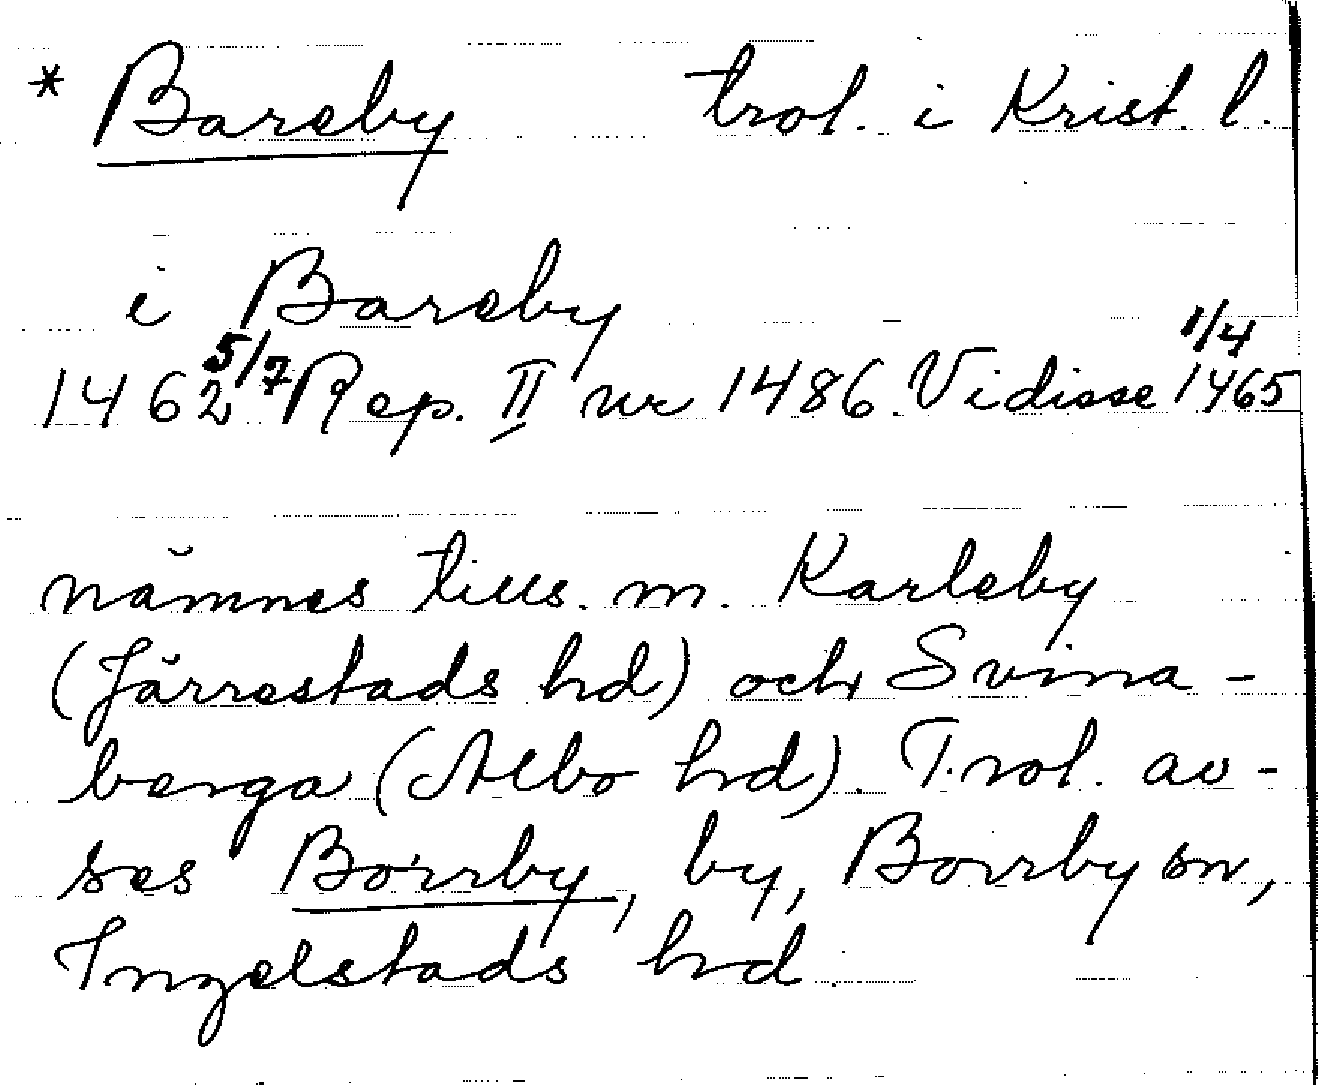 * Bareby trol. i Krist. l.
i Bareby
1462 5/7 Rep. II nr 1486. Vidisse 1/4 1465
nämnes tills. m. Karleby
(Järrestads hd) och Svina-
berga (Albo hd). Trol. av-
ses Borrby, by, Borrby sn,
Ingelstads hd.